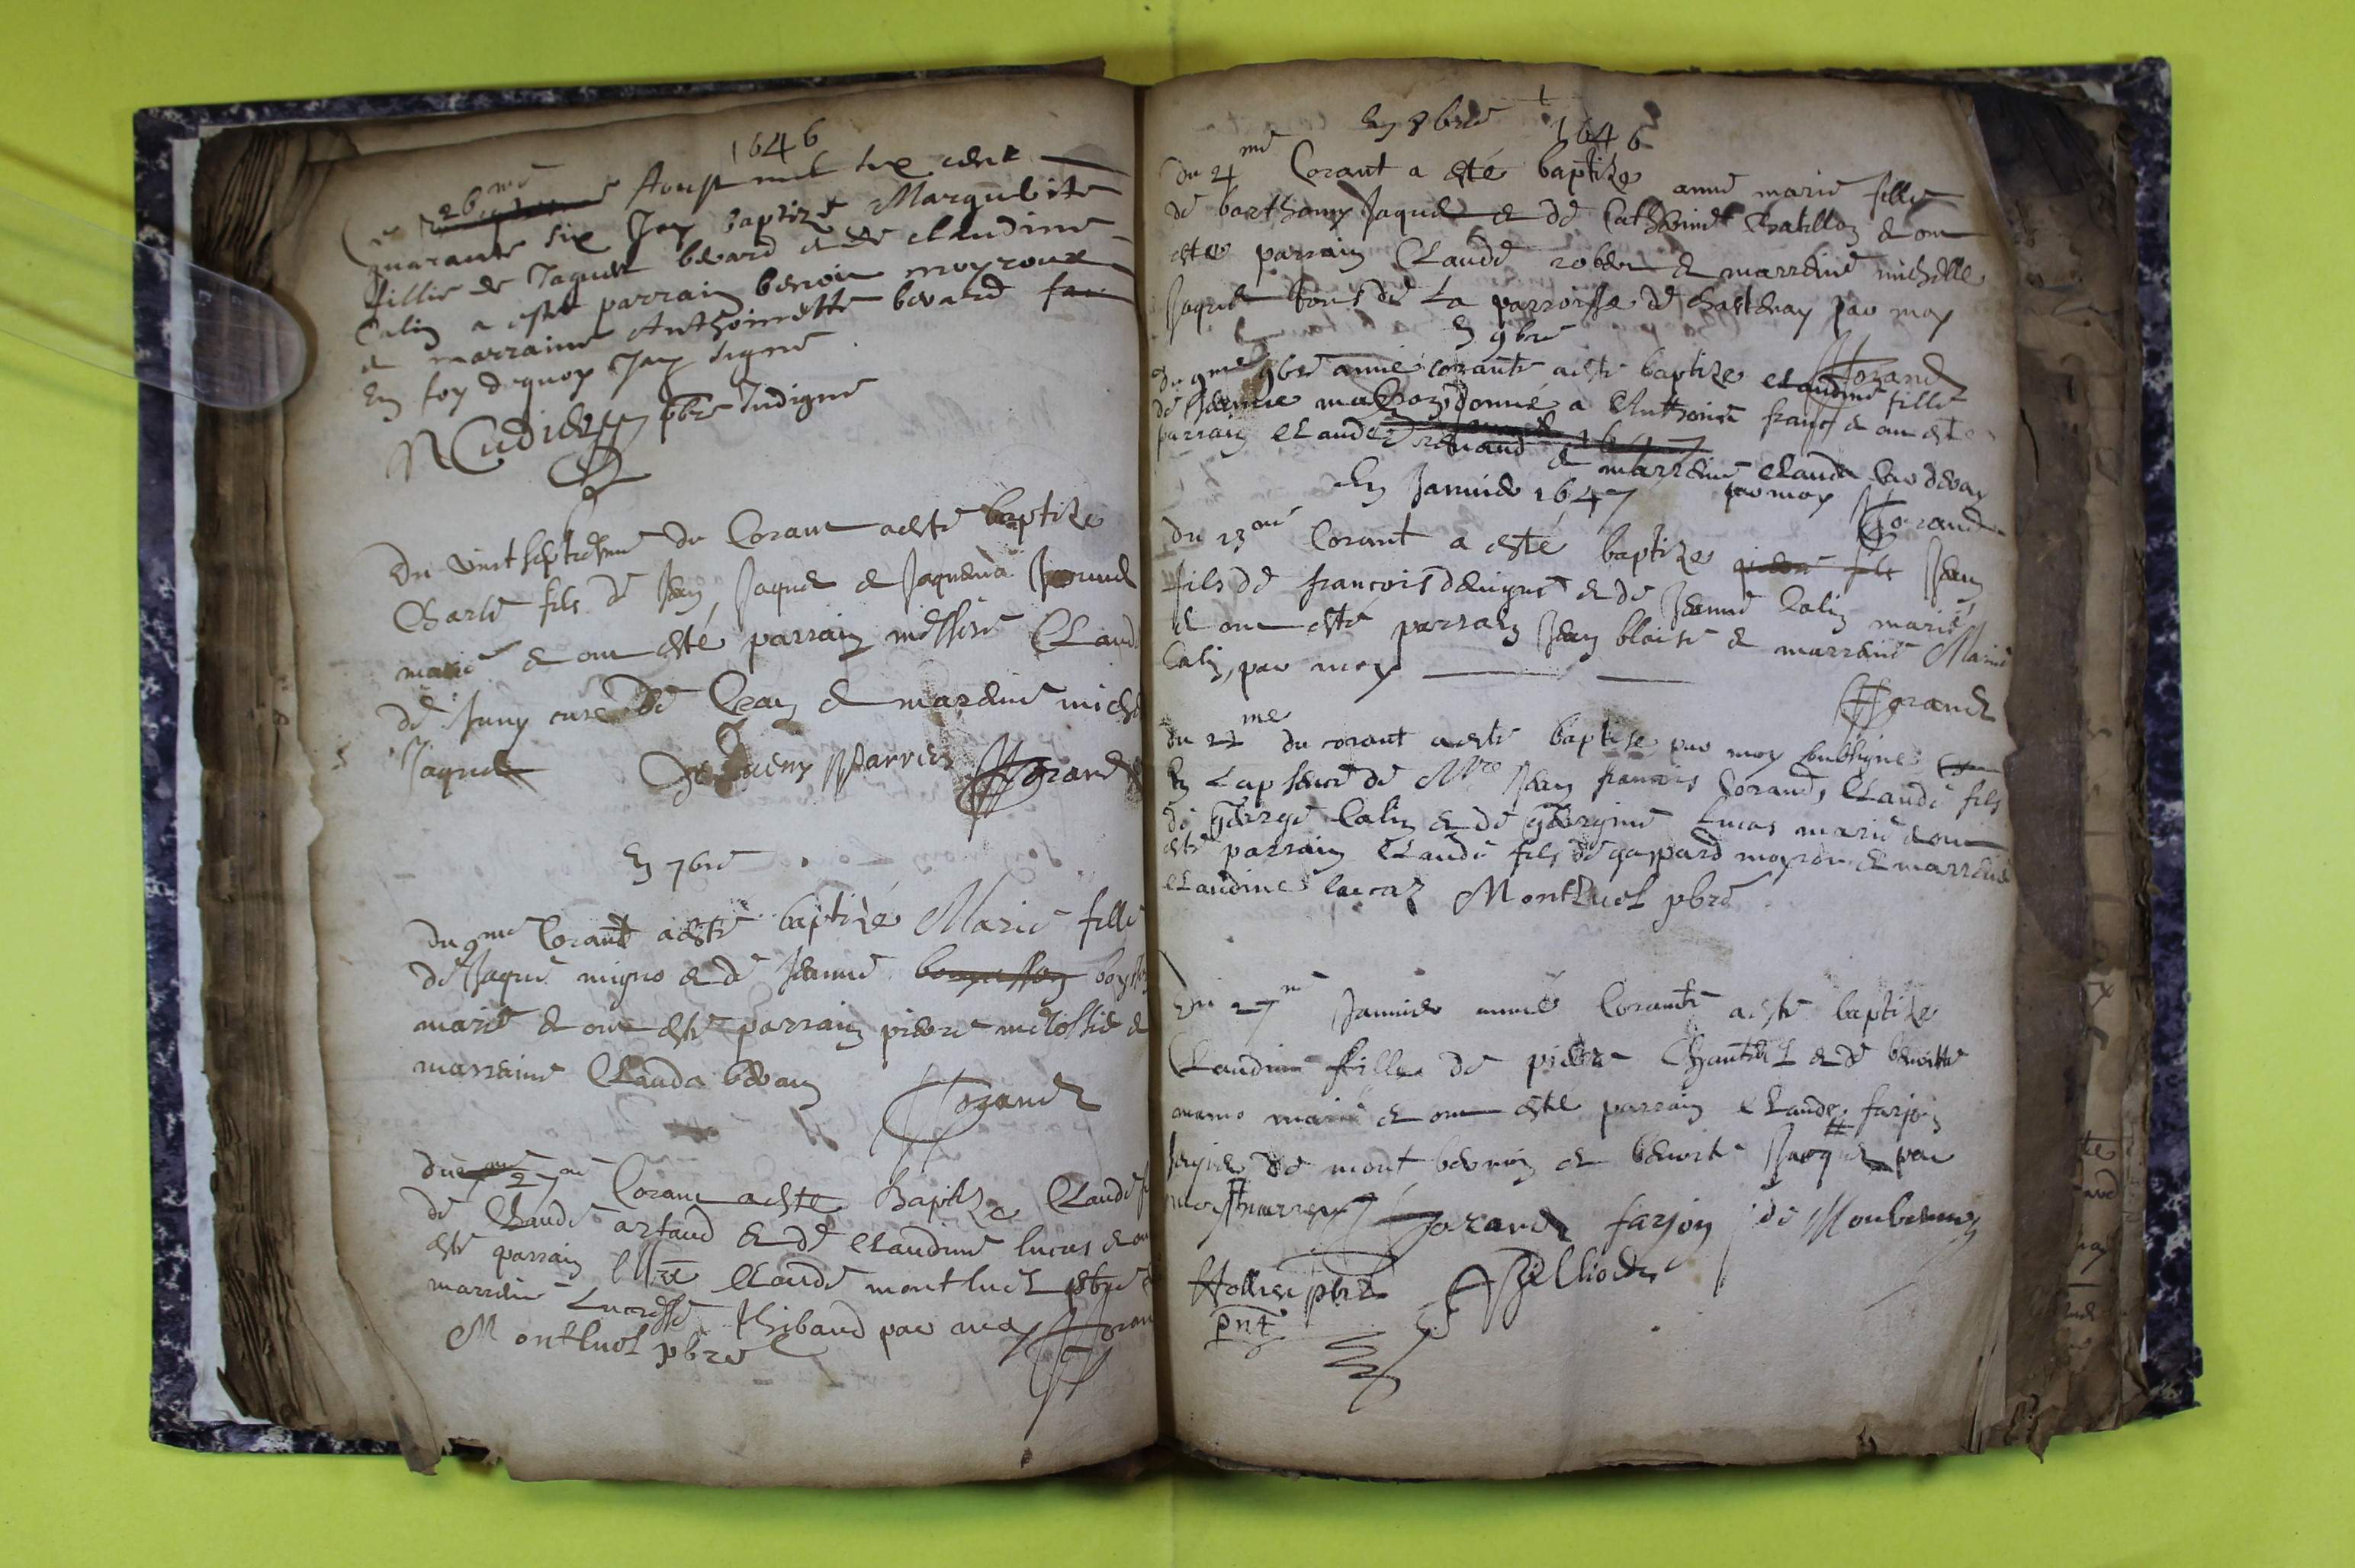 1646
26me Aoust mil six cent
quarante six Jay baptizé Marguerite
fillie de Jaques bevard et de claudine
Calin a esté parrain benoit moyroux
et marraine Anthoinette bevard
En foy dequoy Jay signé
pbre Indigne
Du vint septiesme du Corant aesté baptize
Charle fils de Jean Jaques et Jaquema
marié et ont esté parrain messire Claud
de Juny curé de et mareine miche
Jaques parrien Morand
En 7bre
Du 9me Corant aesté baptizé Marie fille
de Jaque migno et de Jeanne
marié et ont esté parrain pierre et
marraine Clauda bevan
Morand
du 27me Corant aeste Baptize Claude
de Claude artaud et de claudine lucas et on
esté parrain Mre Claude montluel pbre
marreine Lucresse Thibaud par moy Moran
Montluel pbre
En 8bre
1646
Du 4me Corant a esté baptize anne marie fille
de barthomy Jaques et de Catherine Chatillon et ont
estes parrain Claude robert et marreine michelle
Jaques tous de La parroisse de Chastenay par moy
Morand
En 9bre
Du 9me 9bre année corante aesté baptize claudine fille
de Jeanne donné a Anthoine franc et on esté
parrain Claude renaud et marreine Clauda
par moy
Morand
En Janvier 1647
Du 13me Corant a esté baptize pierre fils Jean
fils de francois devigne et de Jeanne Calin marié
et ont esté parrain Jean blaise et marreine Marie
Calin, par moy
Morand
du 22me du corant aesté baptise par moy soubsigné
En Lapsence de Mre Jean francois Morand, Claude fils
de george Calin et de georgine Lucas marié et ont
esté parrain Claude fils de gaspard moyrou et marreine
claudine lucaz Montluel pbre
Du 27me Janvier année Corante aesté baptize
Claudine fille de pierre Chantrel et de benoitte
mamo marié et ont esté parrain Claude farjon
de mont bevrin et benoite Jaques par
moy Morand farjon de
pbre
pnt